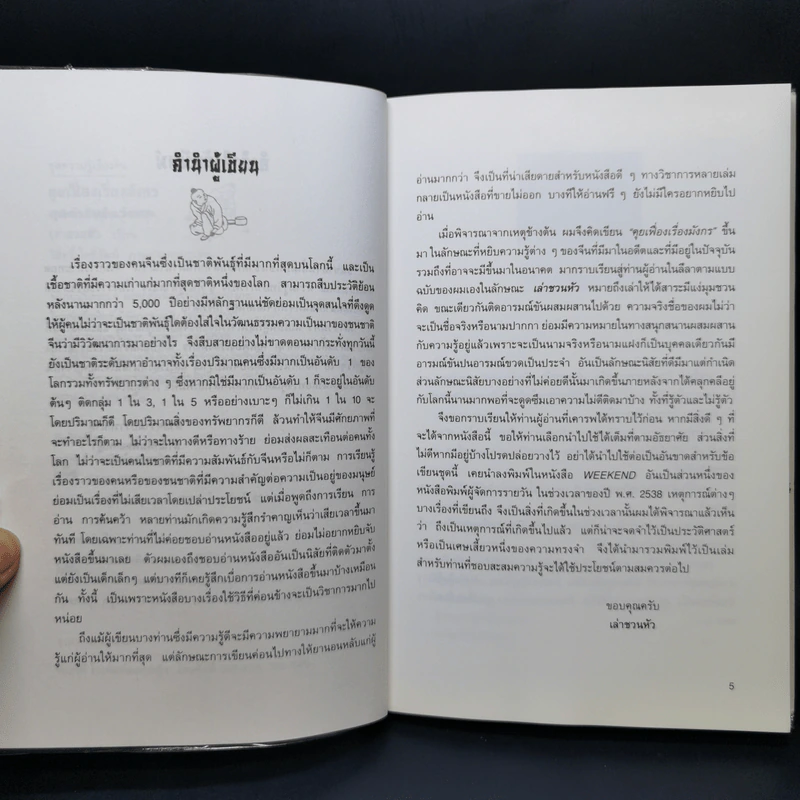 คำนำผู้เขียน
เรื่องราวของคนจีนซึ่งเป็นชาติพันธุ์ที่มีมากที่สุดบนโลกนี้ และเป็น
เชื้อชาติที่มีความเก่าแก่มากที่สุดชาติหนึ่งของโลก สามารถสืบประวัติย้อน
หลังนานมากกว่า 5,000 ปีอย่างมีหลักฐานแน่ชัดย่อมเป็นจุดสนใจที่ดึงดูด
ให้ผู้คนไม่ว่าจะเป็นชาติพันธุ์ใดต้องใส่ใจในวัฒนธรรมความเป็นมาของชนชาติ
จีนว่ามีวิวัฒนาการมาอย่างไร จึงสืบสายอย่างไม่ขาดตอนมากระทั่งทุกวันนี้
ยังเป็นชาติระดับมหาอำนาจทั้งเรื่องปริมาณคนซึ่งมีมากเป็นอันดับ 1 ของ
โลกรวมทั้งทรัพยากรต่าง ๆ ซึ่งหากมิใช่มีมากเป็นอันดับ 1 ก็จะอยู่ในอันดับ
ต้นๆ ติดกลุ่ม 1 ใน 3, 1 ใน 5 หรืออย่างเบาะๆ ก็ไม่เกิน 1 ใน 10 จะ
โดยปริมาณก็ดี โดยปริมาณสิ่งของทรัพยากรก็ดี ล้วนทำให้จีนมีศักยภาพที่
จะทำอะไรก็ตาม ไม่ว่าจะในทางดีหรือทางร้าย ย่อมส่งผลสะเทือนต่อคนทั้ง
โลก ไม่ว่าจะเป็นคนในชาติที่มีความสัมพันธ์กับจีนหรือไม่ก็ตาม การเรียนรู้
เรื่องราวของคนหรือของชนชาติที่มีความสำคัญต่อความเป็นอยู่ของมนุษย์
ย่อมเป็นเรื่องที่ไม่เสียเวลาโดยเปล่าประโยชน์ แต่เมื่อพูดถึงการเรียน การ
อ่าน การค้นคว้า หลายท่านมักเกิดความรู้สึกรำคาญเห็นว่าเสียเวลาขึ้นมา
ทันที โดยเฉพาะท่านที่ไม่ค่อยชอบอ่านหนังสืออยู่แล้ว ย่อมไม่อยากหยิบจับ
หนังสือขึ้นมาเลย ตัวผมเองถึงชอบอ่านหนังสืออันเป็นนิสัยที่ติดตัวมาตั้ง
แต่ยังเป็นเด็กเล็กๆ แต่บางทีก็เคยรู้สึกเบื่อการอ่านหนังสือขึ้นมาบ้างเหมือน
กัน ทั้งนี้ เป็นเพราะหนังสือบางเรื่องใช้วิธีที่ค่อนข้างจะเป็นวิชาการมากไป
หน่อย
ถึงแม้ผู้เขียนบางท่านซึ่งมีความรู้ดีจะมีความพยายามมากที่จะให้ความ
รู้แก่ผู้อ่านให้มากที่สุด แต่ลักษณะการเขียนค่อนไปทางให้ยานอนหลับแก่ผู้
อ่านมากกว่า จึงเป็นที่น่าเสียดายสำหรับหนังสือดี ๆ ทางวิชาการหลายเล่ม
กลายเป็นหนังสือที่ขายไม่ออก บางทีให้อ่านฟรี ๆ ยังไม่มีใครอยากหยิบไป
อ่าน
เมื่อพิจารณาจากเหตุข้างต้น ผมจึงคิดเขียน "คุยเฟื่องเรื่องมังกร" ขึ้น
มา ในลักษณะที่หยิบความรู้ต่าง ๆ ของจีนที่มีมาในอดีตและที่มีอยู่ในปัจจุบัน
รวมถึงที่อาจจะมีขึ้นมาในอนาคต มากราบเรียนสู่ท่านผู้อ่านในลีลาตามแบบ
ฉบับของผมเองในลักษณะ เล่าชวนหัว หมายถึงเล่าให้ได้สาระมีแง่มุมชวน
คิด ขณะเดียวกันติดอารมณ์ขันผสมผสานไปด้วย ความจริงชื่อของผมไม่ว่า
จะเป็นชื่อจริงหรือนามปากกา ย่อมมีความหมายในทางสนุกสนานผสมผสาน
กับความรู้อยู่แล้วเพราะจะเป็นนามจริงหรือนามแฝงก็เป็นบุคคลเดียวกันมี
อารมณ์ขันปนอารมณ์ขวดเป็นประจำ อันเป็นลักษณะนิสัยที่ดีมีมาแต่กำเนิด
ส่วนลักษณะนิสัยบางอย่างที่ไม่ค่อยดีนั้นมาเกิดขึ้นภายหลังจากได้คลุกคลีอยู่
กับโลกนี้นานมากพอที่จะดูดซึมเอาความไม่ดีติดมาบ้าง ทั้งที่รู้ตัวและไม่รู้ตัว
จึงขอกราบเรียนให้ท่านผู้อ่านที่เคารพได้ทราบไว้ก่อน หากมีสิ่งดี ๆ ที่
จะได้จากหนังสือนี้ ขอให้ท่านเลือกนำไปใช้ได้เต็มที่ตามอัธยาศัย ส่วนสิ่งที่
ไม่ดีหากมีอยู่บ้างโปรดปล่อยวางไว้ อย่าได้นำไปใช้ต่อเป็นอันขาดสำหรับข้อ
เขียนชุดนี้ เคยนำลงพิมพ์ในหนังสือ WEEKEND อันเป็นส่วนหนึ่งของ
หนังสือพิมพ์ผู้จัดการรายวัน ในช่วงเวลาของปี พ.ศ. 2538 เหตุการณ์ต่างๆ
บางเรื่องที่เขียนถึง จึงเป็นสิ่งที่เกิดขึ้นในช่วงเวลานั้นผมได้พิจารณาแล้วเห็น
ว่า ถึงเป็นเหตุการณ์ที่เกิดขึ้นไปแล้ว แต่ก็น่าจะจดจำไว้เป็นประวัติศาสตร์
หรือเป็นเศษเสี้ยวหนึ่งของความทรงจำ จึงได้นำมารวมพิมพ์ไว้เป็นเล่ม
สำหรับท่านที่ชอบสะสมความรู้จะได้ใช้ประโยชน์ตามสมควรต่อไป
ขอบคุณครับ
เล่าชวนหัว
5